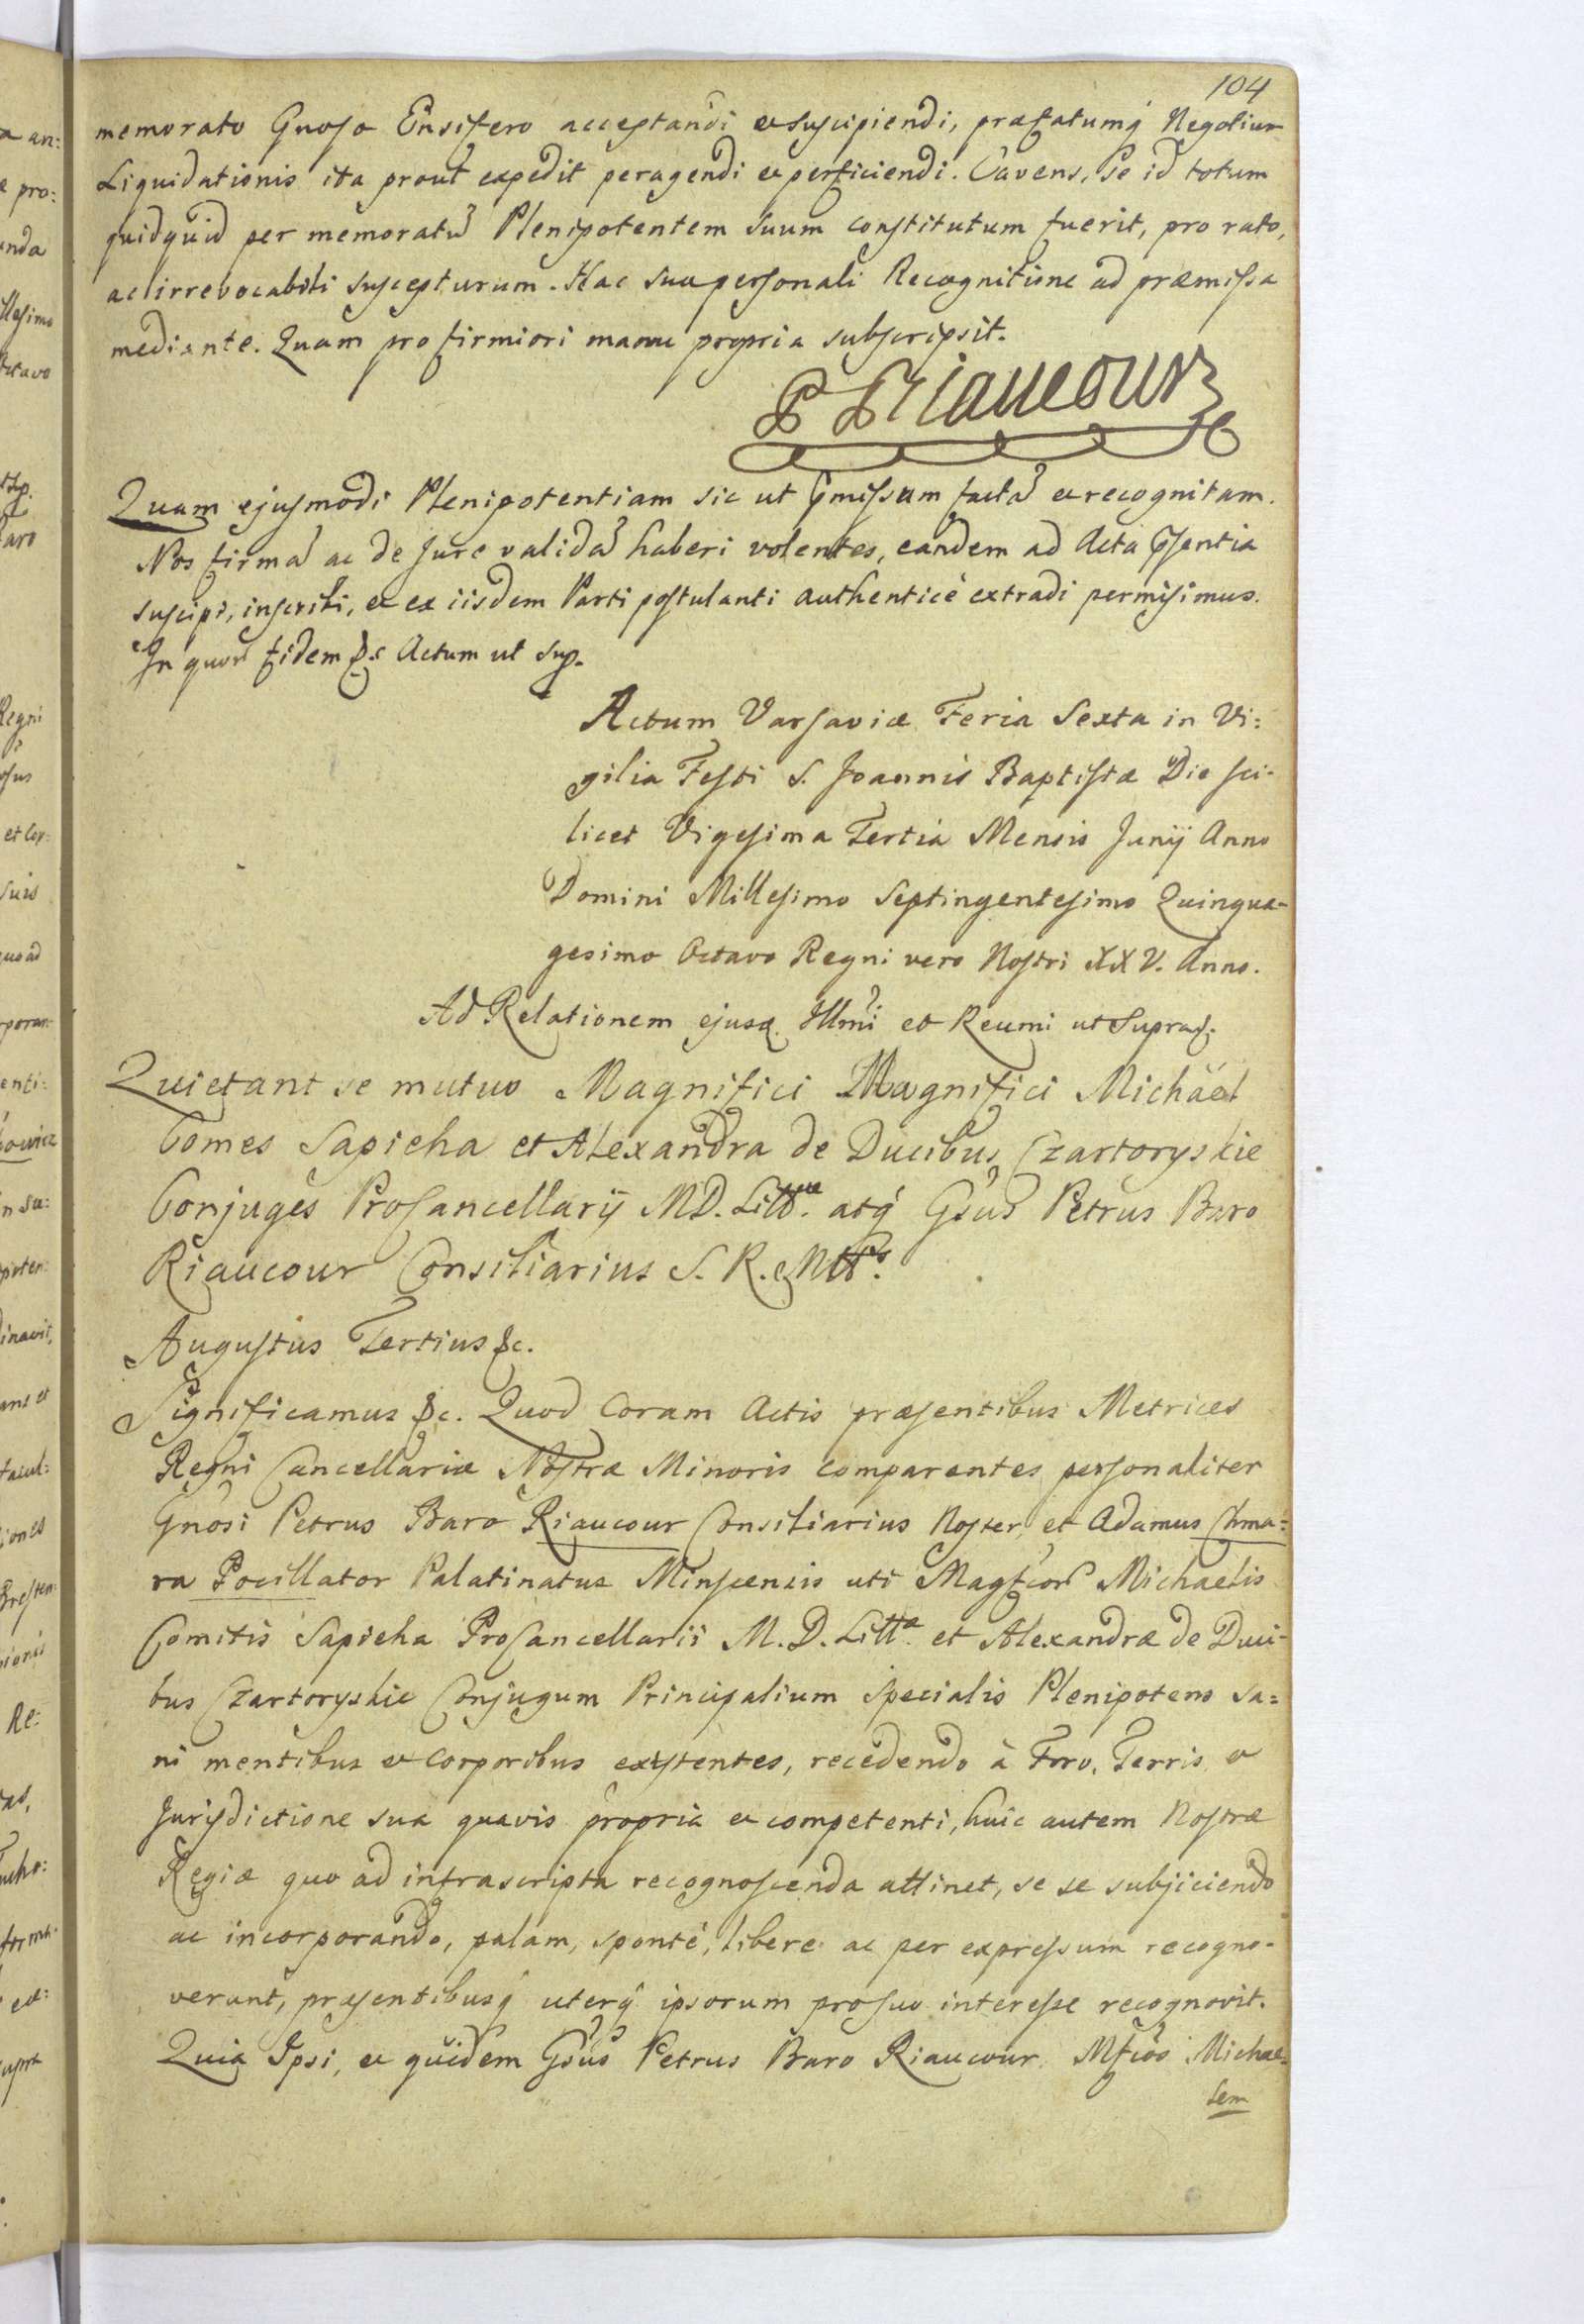 104
memorato Gnoso Ensifero acceptandi et suscipiendi, præfatumq́ Negotium
Liquidationis ita prout expedit peragendi et perficiendi. Cavens, se id totum
quidquid per memoratũ Plenipotentem suum constitutum fuerit, pro rato,
ac irrevocabili suscepturum. Hac sua personali Recognitione ad præmissa
mediante. Quam pro firmiori manu propria subscripsit.
P Riaucour
Quam ejusmodi Plenipotentiam sic ut p̃missum factã et recognitam.
Nos firmã ac de Jure validã haberi volentes, eandem ad Acta p̃sentia
suscipi, inscribi, et ex iisdem Parti postulanti authenticè extradi permisimus.
In quorũ fidem &c Actum ut sup.
Actum Varsaviæ Feria Sexta in Vi:
gilia Festi S. Joannis Baptistæ Die sci-
licet Vigesima Tertia Mensis Junij Anno
Domini Millesimo Septingentesimo Quinqua-
gesimo Octavo Regni vero Nostri XXV. Anno.
Ad Relationem ejusq. Illm̃i et Reumi ut Supra.
Quietant se mutuo Magnifici Magnifici Michäel
Comes Sapieha et Alexandra de Ducibus Czartoryskie
Conjuges ProCancellarij M.D. Littæ. atq́ Gsũs Petrus Baro
Riaucour Consiliarius S. R. Mttis.
Augustus Tertius &c.
Significamus &c. Quod Coram Actis præsentibus Metrices
Regni Cancellariæ Nostræ Minoris comparentes personaliter
Gnosi Petrus Baro Riaucour Consiliarius Noster, et Adamus Chma:
ra Pocillator Palatinatus Minscensis uti Magfcorũ Michaelis
Comitis Sapieha ProCancellarii M. D. Litta. et Alexandræ de Duci-
bus Czartoryskie Conjugum Principalium specialis Plenipotens sa=
ni mentibus et Corporibus existentes, recedendo à Foro, Terris et
Jurisdictione sua quavis propria et competenti, huic autem Nostræ
Regiæ quo ad infrascripta recognoscenda attinet, se se subjiciendo
ac incorporando, palam, sponté, libere ac per expressum recogno-
verunt, præsentibusq́ uterq́ ipsorum pro suo interesse recognovit.
Quia Ipsi, et quidem Gsũs Petrus Baro Riaucour. Mfcos Michae=
lem